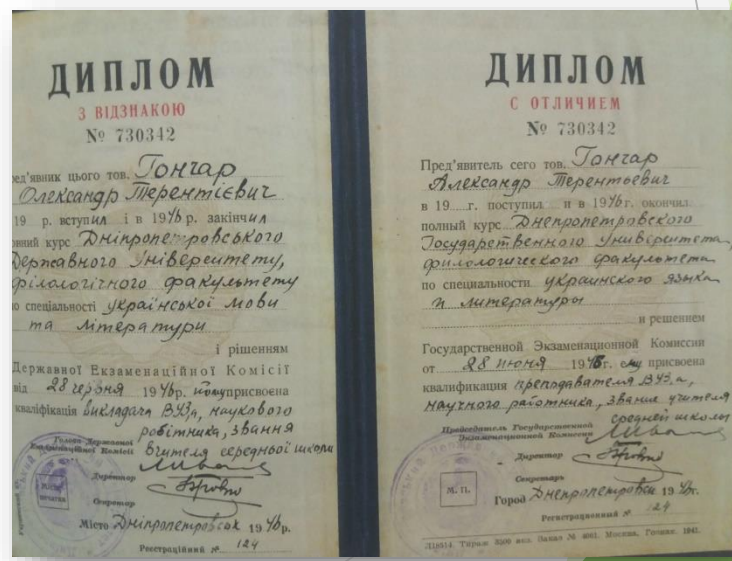 ДИПЛОМ
З ВІДЗНАКОЮ
№ 730342
ред'явник цього тов. Гончар
Олександр Терентієвич
19 р. вступил і в 1946 р. закінчил
овний курс Дніпропетровського
Державного Університету,
філологічного факультету
о спеціальності української мови
та літератури
і рішенням
Державної Екзаменаційної Комісії
від 28 червня 1946р. йому присвоєна
кваліфікація викладача ВУЗ'а, наукового
робітника, звання
вчителя середньої школи
Голова Державної
Екзаменаційної Комісії
Директор
Секретар
Місто Дніпропетровськ 1946р.
Реєстраційний № 124
ДИПЛОМ
С ОТЛИЧИЕМ
№ 730342
Пред'явитель сего тов. Гончар
Александр Терентьевич
в 19 г. поступил и в 1946г. окончил
полный курс Днепропетровского
Государственного Университета,
филологического факультета
по специальности украинского языка
и литературы
и решением
Государственной Экзаменационной Комиссии
от 28 июня 1946г. ему присвоена
квалификация преподавателя ВУЗ'а,
научного работника, звание учителя
средней школы
Председатель Государственной
Экзаменационной Комиссии
Директор
Секретарь
М. П.
Город Днепропетровск 1946г.
Регистрационный № 124
Тираж 3500 экз. Заказ № Москва, Гознак.